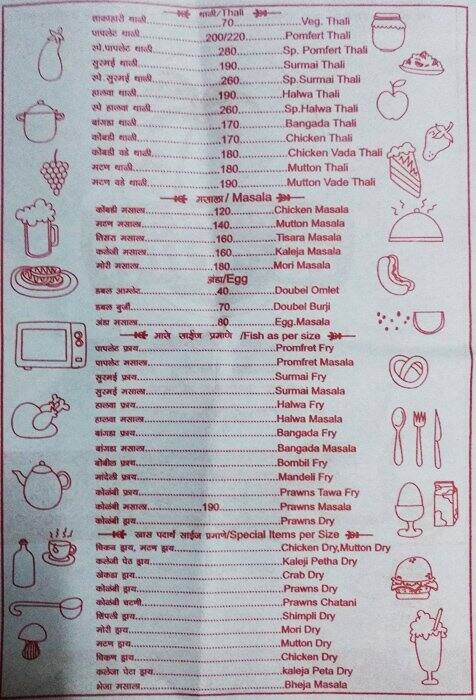 थाळी/Thali
शाकाहारी थाळी 70 Veg. Thali
पापलेट थाळी 200/220 Pomfert Thali
स्पे.पापलेट थाळी 280 Sp. Pomfert Thali
सुरमई थाळी 190 Surmai Thali
स्पे.सुरमई थाळी 260 Sp.Surmai Thali
हालवा थाळी 190 Halwa Thali
स्पे हालवा थाळी 260 Sp.Halwa Thali
बांगडा थाळी 170 Bangada Thali
कोंबडी थाळी 170 Chicken Thali
कोंबडी वडे थाळी 180 Chicken Vada Thali
मटण थाळी 180 Mutton Thali
मटण वडे थाळी 190 Mutton Vade Thali
मसाला/ Masala
कोंबडी मसाला 120 Chicken Masala
मटण मसाला 140 Mutton Masala
तिसरा मसाला 160 Tisara Masala
कलेजी मसाला 160 Kaleja Masala
मोरी मसाला 180 Mori Masala
अंडा/Egg
डबल आम्लेट 40 Doubel Omlet
डबल बुर्जी 70 Doubel Burji
अंडा मसाला 80 Egg.Masala
मासे साईज प्रमाणे /Fish as per size
पापलेट फ्राय Promfret Fry
पापलेट मसाला Promfret Masala
सुरमई फ्राय Surmai Fry
सुरमई मसाला Surmai Masala
हालवा फ्राय Halwa Fry
हालवा मसाला Halwa Masala
बांगडा फ्राय Bangada Fry
बांगडा मसाला Bangada Masala
बोंबील फ्राय Bombil Fry
मांदेली फ्राय Mandeli Fry
कोळंबी फ्राय Prawns Tawa Fry
कोळंबी मसाला 190 Prawns Masala
कोळंबी ड्राय Prawns Dry
खास पदार्थ साईज प्रमाणे/Special Items per Size
चिकन ड्राय, मटण ड्राय Chicken Dry,Mutton Dry
कलेजी पेठ ड्राय Kaleji Petha Dry
खेकडा ड्राय Crab Dry
कोळंबी ड्राय Prawns Dry
कोळंबी चटणी Prawns Chatani
शिंपली ड्राय Shimpli Dry
मोरी ड्राय Mori Dry
मटण ड्राय Mutton Dry
चिकण ड्राय Chicken Dry
कलेजा पेटा ड्राय kaleja Peta Dry
भेजा मसाला Bheja Masala